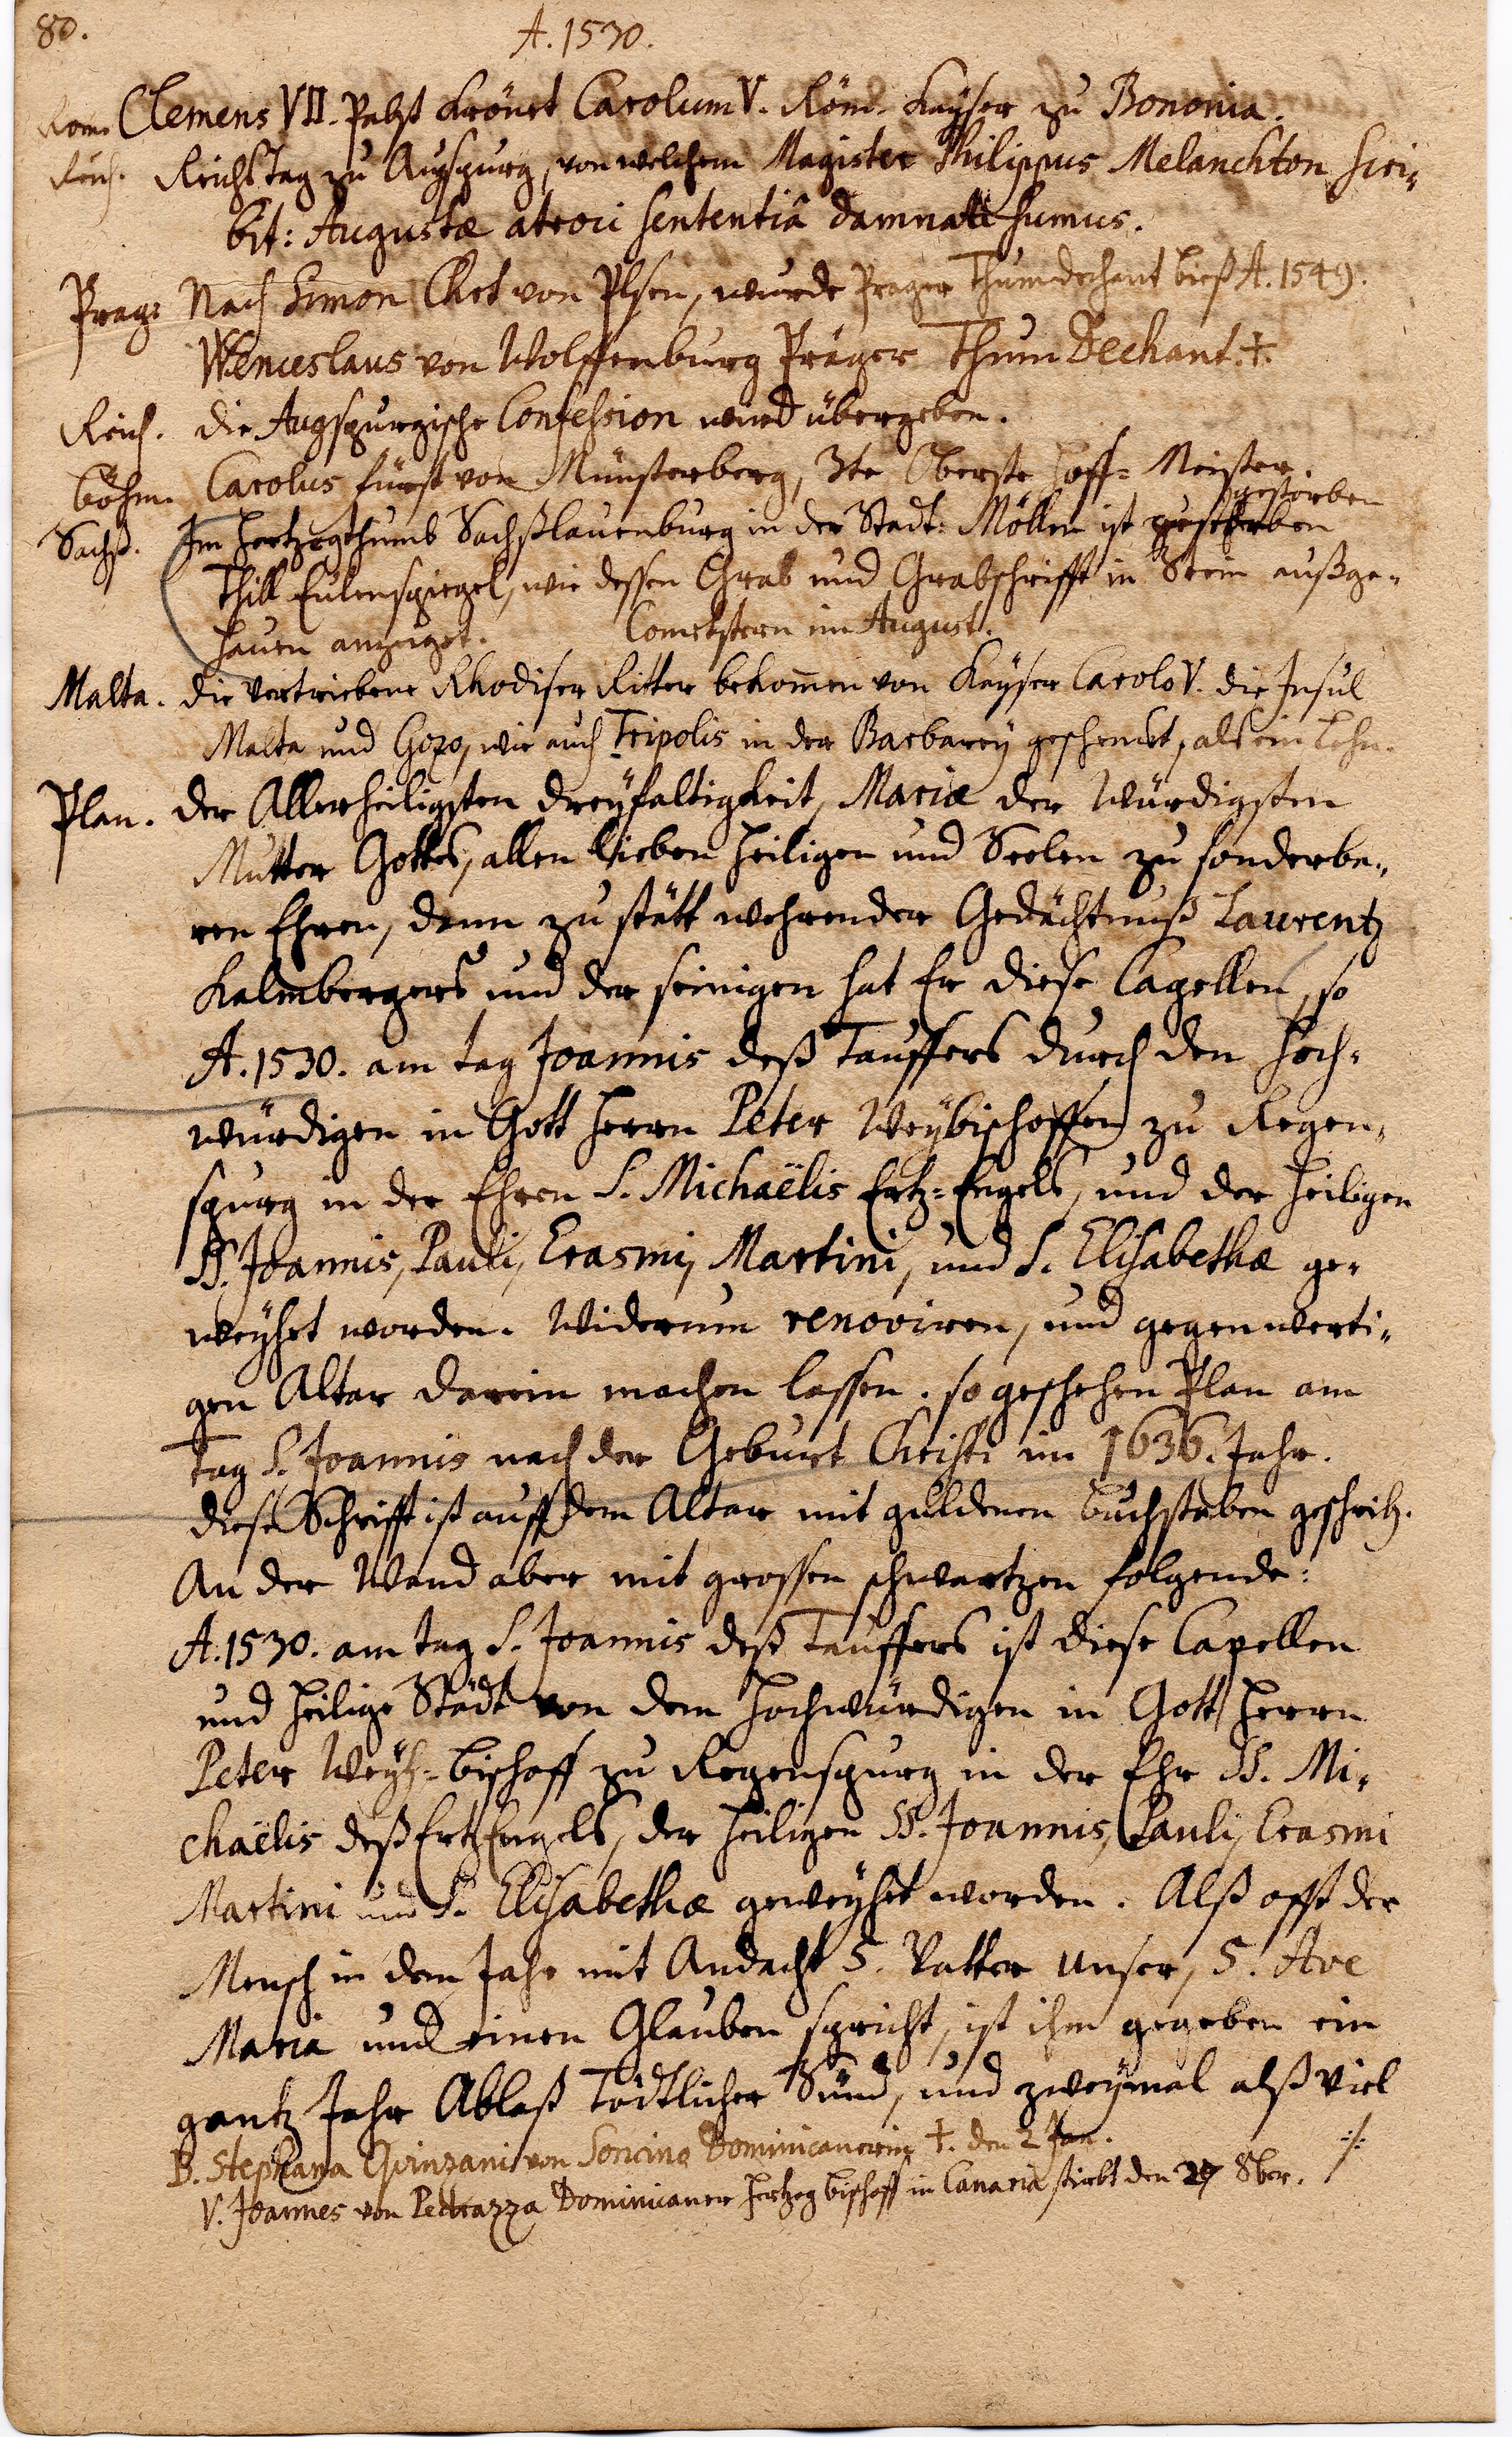 80.
A. 1530.
Rom. Clemens VII. Pabst Krönet Carolum V. Röm. Kayser zu Bononia.
Reich. Reichstag zu Augspurg, von welchem Magister Philippus Melanchton scri-
bit: Augustæ atroci sententiâ damnati sumus.
Prag: Nach Simon Chet von Plsen, wurde Prager Thumdechant bieß A. 1549.
Wenceslaus von Wolffenburg Präger Thum Dechant. †.
Reich. die Augspurgische Confession wird übergeben.
böhm. Carolus fürst von Münsterberg, 3te Oberste Hoff-Meister.
gestorben
Sachß. Im Hertzogthumb Sachßlauenburg in der Stadt: Möllen ist gestorben
Thill Eulenspiegel, wie dessen Grab und Grabschrifft in Stein außge-
hauen anzeiget. Cometstern im August.
Malta. die vertriebene Rhodiser Ritter bekommen von Kayser Carolo V. die Insul
Malta und Gozo, wie auch Tripolis in der Barbarey geschenckt, alß ein Lehn.
Plan. der Allerheiligsten dreyfaltigkeit, Mariæ der Würdigsten
Mutter Gottes, allen lieben Heiligen und Seelen zu sonderba-
ren Ehren, dann zu stätt wehrender Gedächtnuß Laurentz
Kalmbergers und der seinigen hat Er diese Capellen, so
A. 1530. am tag Joannis deß Tauffers durch den Hoch-
würdigen in Gott Herrn Peter Weybischoffen zu Regen-
spurg in der Ehren S. Michaëlis Ertz-Engels, und der Heiligen
SS. Joannis, Pauli, Erasmi, Martini, und S. Elisabethæ ge-
weyhet worden. Widerum renoviren, und gegenwerti-
gen Altar darein machen lassen. so geschehen Plan am
Tag S. Joannis nach der Geburt Christi im 1636. Jahr.
diese Schrifft ist auff dem Altar mit guldenen buchstaben geschrib.
An der Wand aber mit grossen schwartzen folgende:
A. 1530. am tag S. Joannis deß Tauffers ist diese Capellen
und Heilige Städt von dem Hochwürdigen in Gott Herrn
Peter Weyh-bischoff zu Regenspurg in der Ehr SS. Mi-
chaëlis deß ErtzEngels, der Heiligen SS. Joannis, Pauli, Erasmi
Martini und S. Elisabethæ geweyhet worden. Alß offt der
Mensch in dem Jahr mit Andacht 5. Vatter unser, 5. Ave
Maria und einen Glauben spricht, ist ihm gegeben ein
gantz Jahr Ablaß Tödtlicher Sünd, und zweymal alß viel
B. Stephana Quinzani von Soncino Dominicanerin †. den 2 Jan. ·/·
V. Joannes von Pedrazza Dominicaner Hertzog bischoff in Canaria stirbt den 27 8ber.